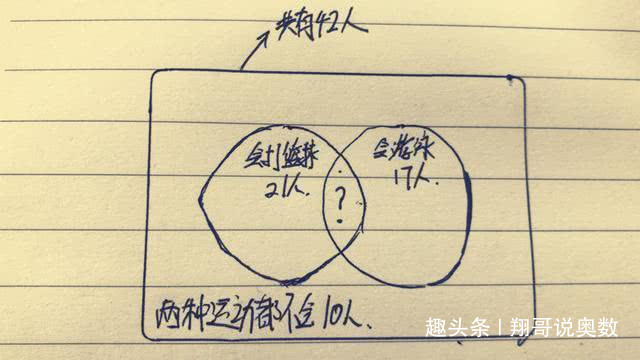 共有42人
会打篮球
21人.
会游泳
17人.
?
两种运动都不会10人.
趣头条 | 翔哥说奥数